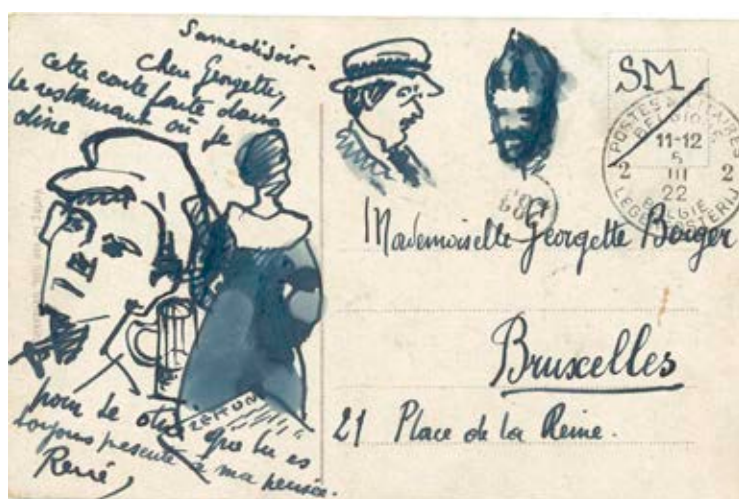 Samedi soir -
Chère Georgette,
cette carte faite dans
le restaurant où je
dîne
ZEITUNG
pour te dire que tu es
toujours présente à ma pensée.
René,
SM
POSTES MILITAIRES
BELGIQUE
11-12
5
III
22
2 2
BELGIE
LEGERPOSTERIJ
Mademoiselle Georgette Berger
Bruxelles
21 Place de la Reine.